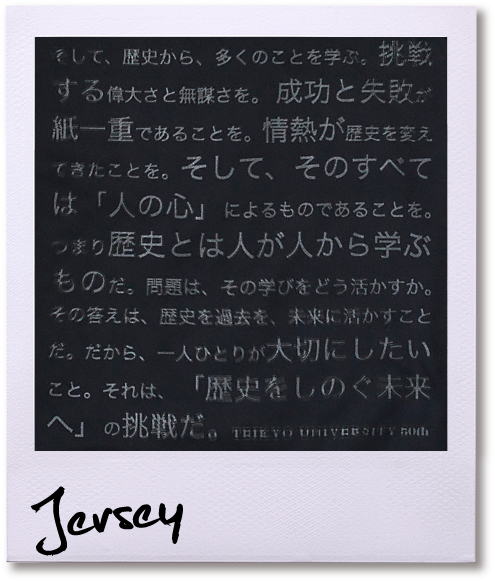 そして、歴史から、多くのことを学ぶ。挑戦
する偉大さと無謀さを。成功と失敗が
紙一重であることを。情熱が歴史を変え
てきたことを。そして、そのすべて
は「人の心」によるものであることを。
つまり歴史とは人が人から学ぶ
ものだ。問題は、その学びをどう活かすか。
その答えは、歴史を過去を、未来に活かすこと
だ。だから、一人ひとりが大切にしたい
こと。それは、「歴史をしのぐ未来
へ」の挑戦だ。TEIKYO UNIVERSITY 50th
Jersey